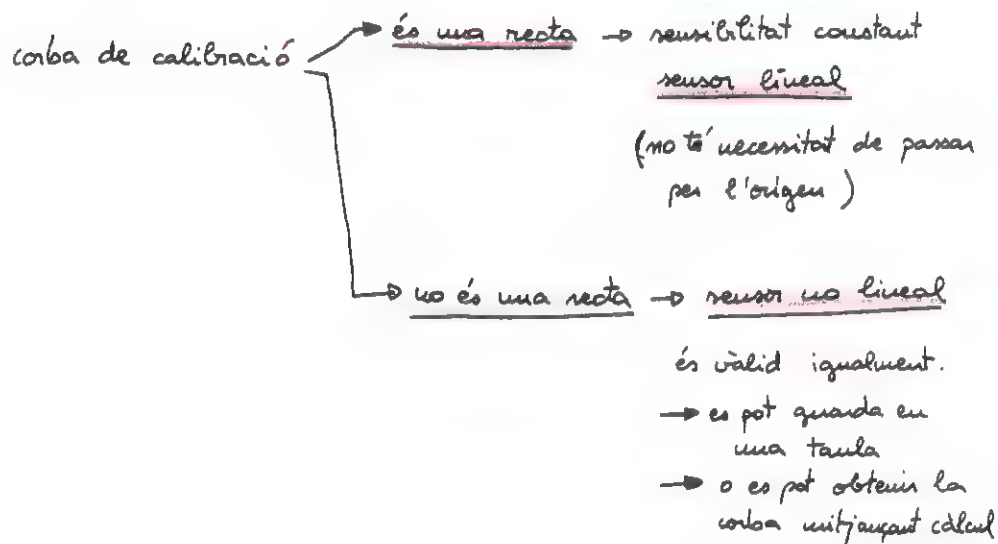 corba de calibració
és una recta → sensibilitat constant
sensor lineal
(no té necessitat de passar
per l'origen)
no és una recta → sensor no lineal
és vàlid igualment.
→ es pot guarda en
una taula
→ o es pot obtenir la
corba mitjançant càlcul